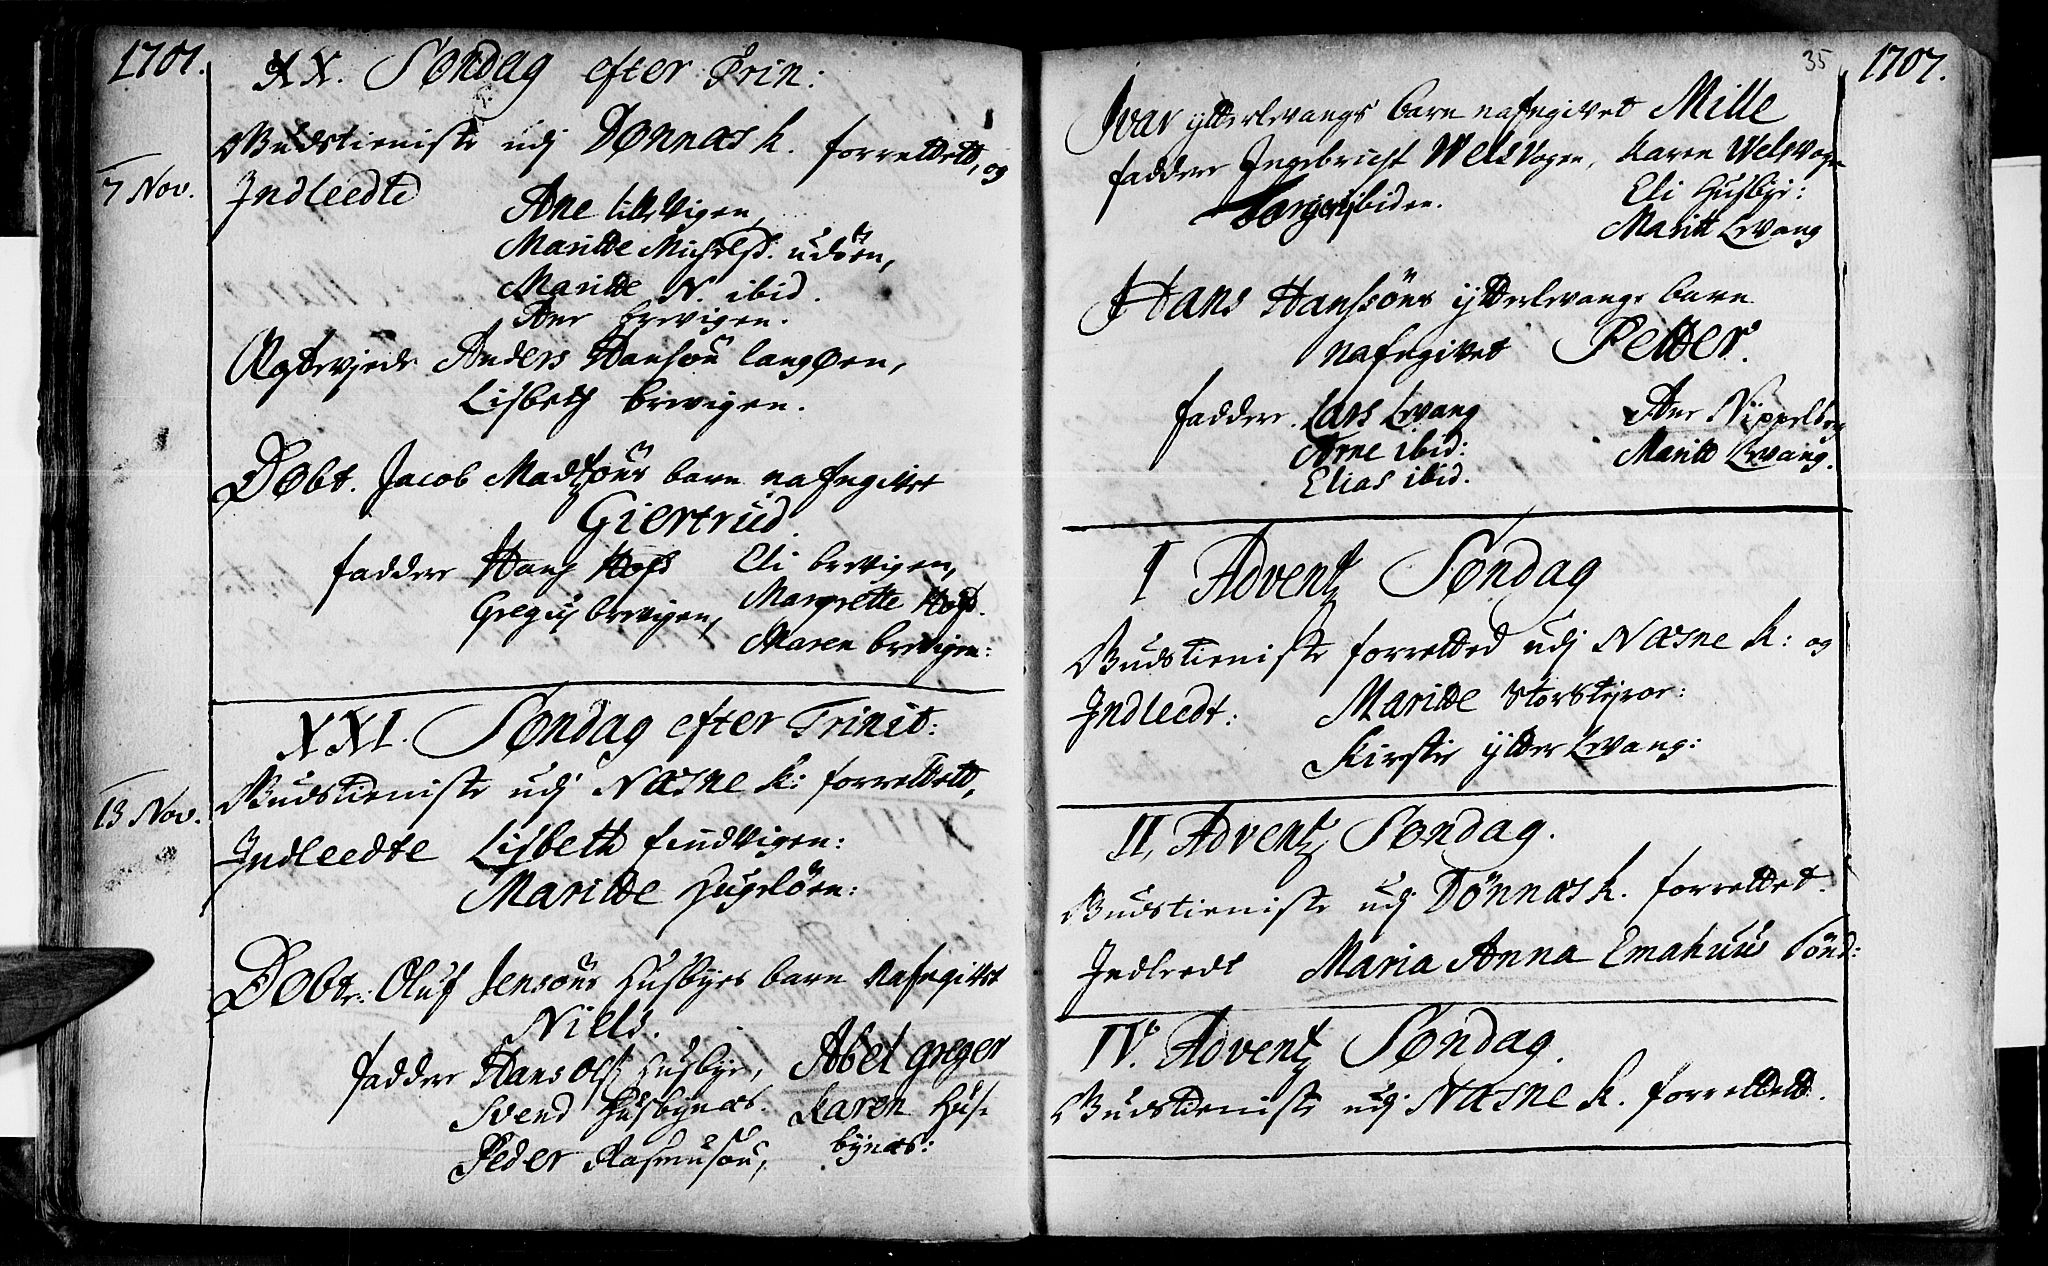 1707.
XX. Søndag efter Trin:
Gudstieniste udj Dønnæs k. forrettett, og
7 Nov.
Indleedte Ane
Maritte Michelsd. udöen,
Maritte N. ibid.
Ane brevigen.
Egteviede Anders Hansön langøen,
Lisbeth brevigen.
Døbt. Jacob Madtzöns barn nafngivet
Giertrud.
faddere Hans Hofs Eli brevigen,
Gregus brevigen, Margrette Hofs.
Maren brevigen:
XXI. Søndag efter Trinit:
Gudstieniste udj Næsne k: forrettett,
13 Nov.
Indleedte Lisbeth findvigen:
Maritte Hugelöen:
Døbt: Oluf Jensöns Husbyes barn nafngivet
Niels.
faddere Hans Ols: Husbye, Abel greger
Svend Husbynæs. Karen Hus-
Peder Rasmusön, bynæs:
35
1707.
Ivar ytterlevangs barn nafngivet Mille
faddere Ingebricht Welsvogen, Karen Welsvogen
ibidem. Eli Husbye:
Maritt Levang
Hans Hanssöns ytterlevangs barn
nafngivet Petter.
faddere. Lars Levang Ane Nippelberg
Arne ibid: Maritt Levang.
Elias ibid.
I Adventz Søndag
Gudstieniste forretted udj Næsne k: og
Indleedt: Maritte Storstyvor:
Kirstie ytter Levang:
II, Adventz Søndag.
Gudstieniste udj Dönnæs k. forrettet.
Indleedt Maria Anna Emahuus Tönd:
IV. Adventz Søndag.
Gudstieniste udj Næsne k. forrettett.